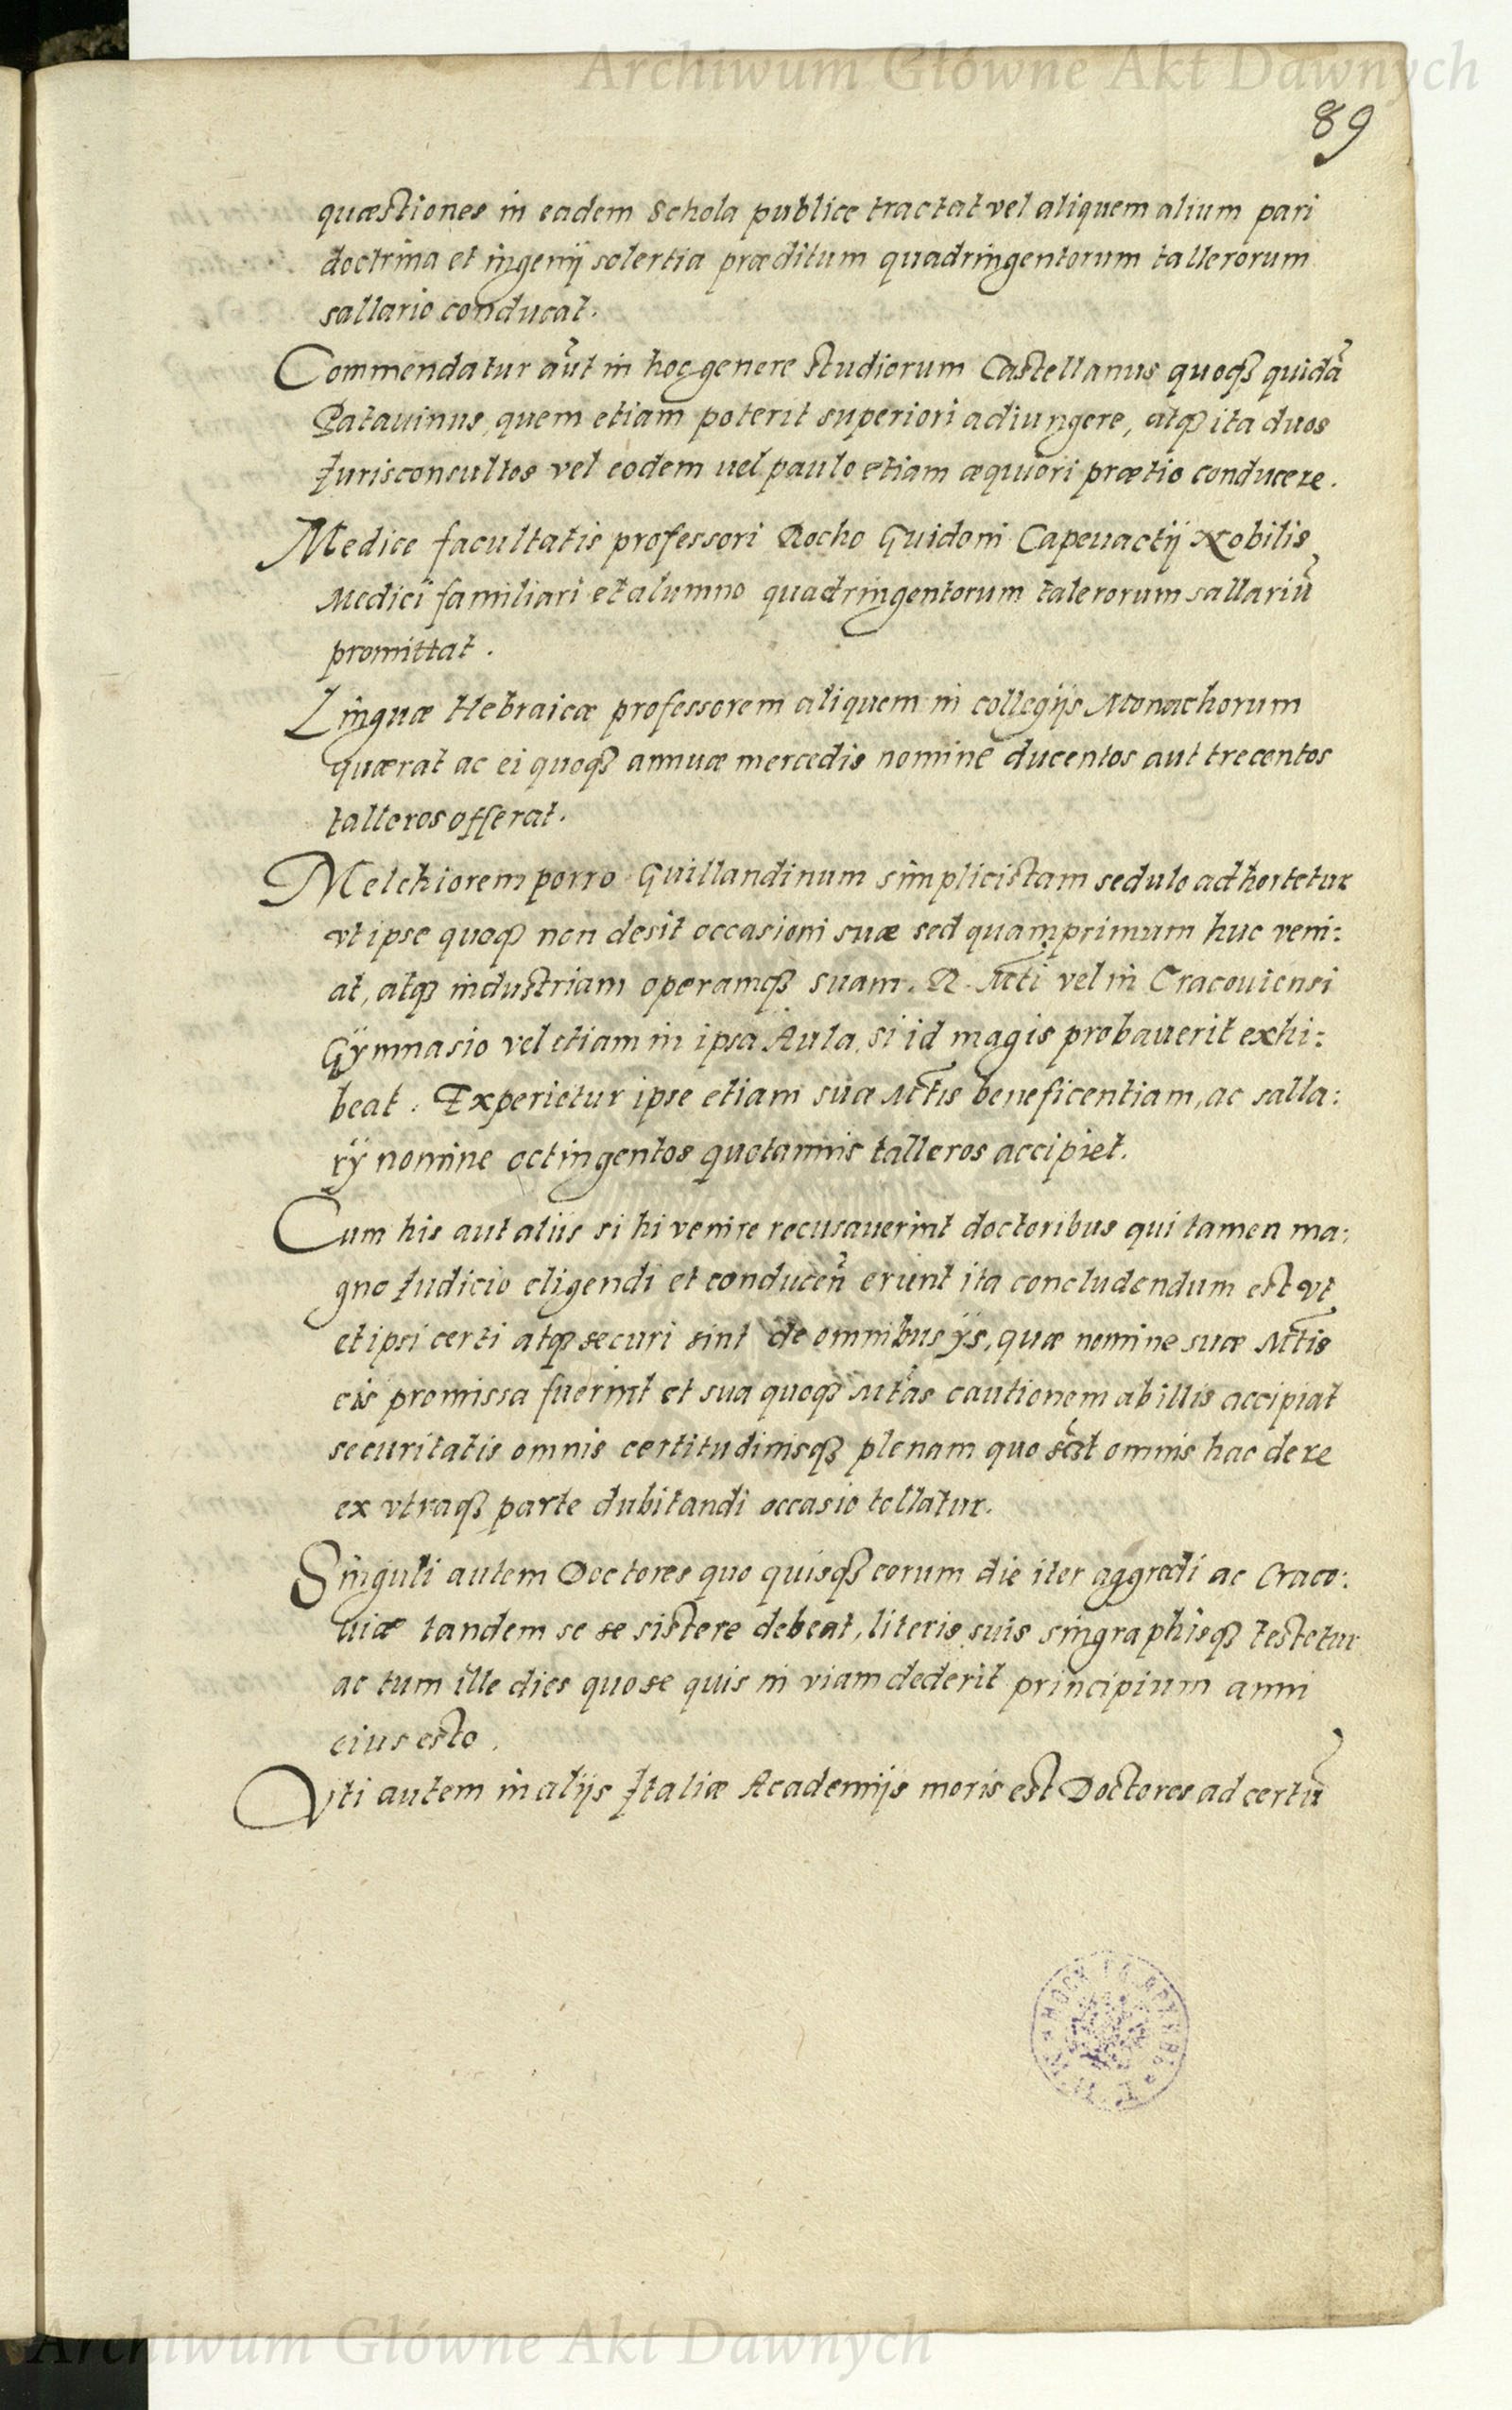 Archiwum Główne Akt Dawnych
89
quæstiones in eadem Schola publice tractat vel aliquem alium pari
doctrina et ingenij solertia præditum quadringentorum tallerorum
sallario conducat.
Commendatur aũt in hoc genere studiorum Castellanus quoqꝫ quidã
Patauinus, quem etiam poterit superiori adiungere, atqꝫ ita duos
Iurisconsultos vel eodem uel paulo etiam æquiori prætio conducere.
Medice facultatis professori Rocho Guidoni Capeuactij Nobilis
Medici familiari et alumno quadringentorum talerorum sallariũ
promittat.
Linguæ Hebraicæ professorem aliquem in collegijs Monachorum
quærat ac ei quoqꝫ annuæ mercedis nomine ducentos aut trecentos
talleros offerat.
Melchiorem porro Guillandinum simplicistam sedulo adhortetur
vt ipse quoqꝫ non desit occasioni suæ sed quamprimum huc veni:
at, atqꝫ industriam operamqꝫ suam. R. Mti vel in Cracouiensi
Gymnasio vel etiam in ipsa Aula, si id magis probauerit exhi:
beat. Experietur ipse etiam suæ Mtis beneficentiam, ac salla:
rÿ nomine octingentos quotannis talleros accipiet.
Cum his aut aliis si hi venire recusauerint doctoribus qui tamen ma:
gno Iudicio eligendi et conducẽn erunt ita concludendum est vt
et ipsi certi atqꝫ securi sint de omnibus ÿs, quæ nomine suæ Mtis
eis promissa fuerint et sua quoqꝫ Mtas cautionem ab illis accipiat
securitatis omnis certitudinisqꝫ plenam quo omnis hac de re
ex vtraqꝫ parte dubitandi occasio tollatur.
Singuli autem Doctores quo quisqꝫ eorum die iter aggredi ac Craco:
uiæ tandem se se sistere debeat, literis suis singraphisqꝫ testetur
ac tum ille dies quo se quis in viam dederit principium anni
eius esto.
Vti autem in alijs Italiæ Academijs moris est Doctores ad certũ
Archiwum Główne Akt Dawnych